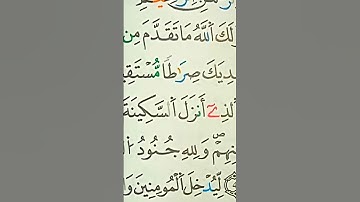 لَكَ اَ۬للَّهُ مَا تَقَدَّمَ مِن
دِيَكَ صِرَٰطاٗ مُّسْتَقِي
اَ۬لذِےٓ أَنزَلَ اَ۬لسَّكِينَةَ
نِهِمْۖ وَلِلهِ جُنُودُ اُ۬ل
لِّيُدْخِلَ اَ۬لْمُومِنِينَ وَا